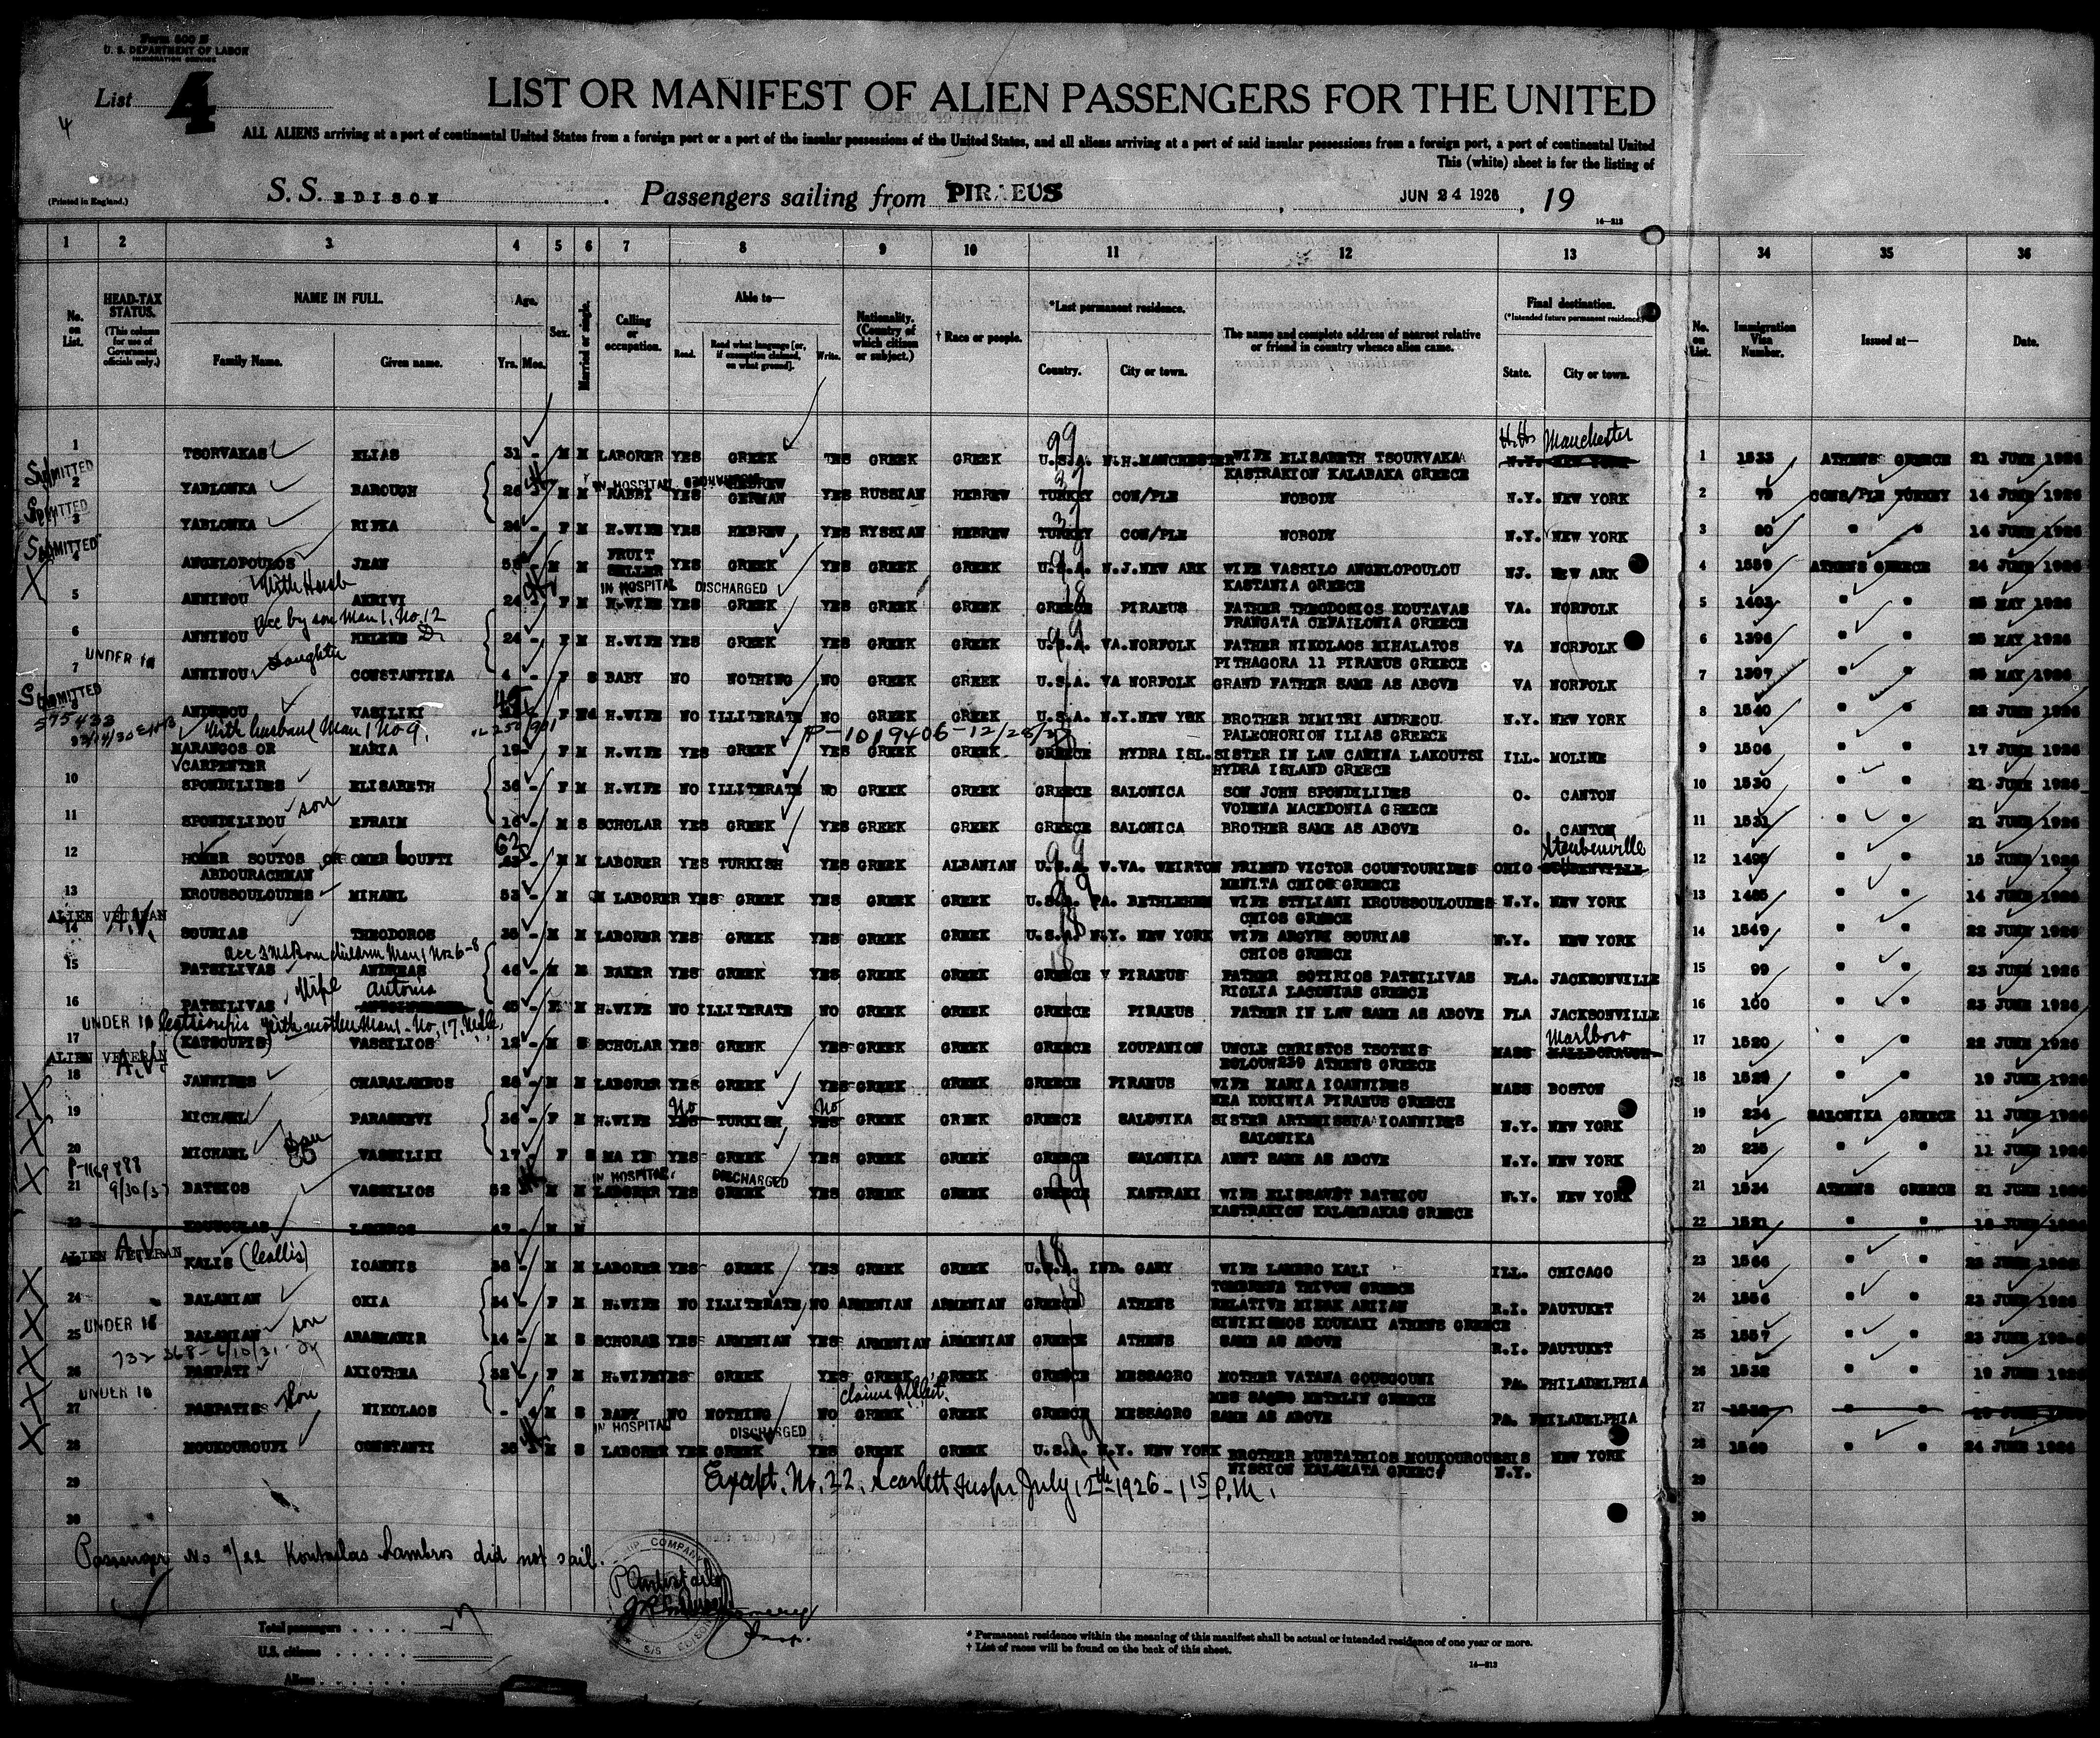 Form 500 B
U. S. DEPARTMENT OF LABOR
IMMIGRATION SERVICE
List 4
4
LIST OR MANIFEST OF ALIEN PASSENGERS FOR THE UNITED
ALL ALIENS arriving at a port of continental United States from a foreign port or a port of the insular possessions of the United States, and all aliens arriving at a port of said insular possessions from a foreign port, a port of continental United
This (white) sheet is for the listing of
(Printed in England.)
S. S. EDISON Passengers sailing from PIRAEUS, JUN 24 1926, 19
14-213
1 2 3 4 5 6 7 8 9 10 11 12 13 34 35 36
No. on List. HEAD-TAX STATUS. (This column for use of Government officials only.) NAME IN FULL. Family Name. Given name. Age. Yrs. Mos. Sex. Married or single. Calling or occupation. Able to— Read. Read what language [or, if exemption claimed, on what ground]. Write. Nationality. (Country of which citizen or subject.) † Race or people. *Last permanent residence. Country. City or town. The name and complete address of nearest relative or friend in country whence alien came. Final destination. (*Intended future permanent residence.) State. City or town. No. on List. Immigration Visa Number. Issued at— Date.
N.H. Manchester
1 TSORVAKAS ELIAS 31 - M M LABORER YES GREEK YES GREEK GREEK U.S.A. N.H. MANCHESTER WIFE ELISABETH TSOURVAKA N.Y. NEW YORK 1 1533 ATHENS GREECE 21 JUNE 1926
KASTRAKION KALABAKA GREECE
ADMITTED IN HOSPITAL HEBREW
2 YABLONKA BAROUGH 26 - M M RABBI YES GERMAN YES RUSSIAN HEBREW TURKEY CON/PLE NOBODY N.Y. NEW YORK 2 79 CONS/PLE TURKEY 14 JUNE 1926
ADMITTED
3 YABLONKA RIFKA F M H.WIFE YES HEBREW YES RYSSIAN HEBREW TURKEY CON/PLE NOBODY N.Y. NEW YORK 3 80 " " 14 JUNE 1926
ADMITTED FRUIT
4 ANGELOPOULOS JEAN M M SELLER YES GREEK YES GREEK GREEK U.S.A. N.J. NEW ARK WIFE VASSILO ANGELOPOULOU NJ. NEW ARK 4 1559 ATHENS GREECE 24 JUNE 1926
With Husb IN HOSPITAL DISCHARGED KASTANIA GREECE
5 ANNINOU AKRIVI F M H.WIFE YES GREEK YES GREEK GREEK GREECE PIRAEUS FATHER THEODOSIOS KOUTAVAS VA. NORFOLK 5 1403 " " 25 MAY 1926
acc by son Man 1. No. 12 FRANGATA CEFAILONIA GREECE
6 ANNINOU HELENE 24 - F M H.WIFE YES GREEK YES GREEK GREEK U.S.A. VA.NORFOLK FATHER NIKOLAOS MIHALATOS VA NORFOLK 6 1396 " " 25 MAY 1926
UNDER 16 Daughter PITHAGORA 11 PIRAEUS GREECE
7 ANNINOU CONSTANTINA 4 - F S BABY NO NOTHING NO GREEK GREEK U.S.A. VA NORFOLK GRAND FATHER SAME AS ABOVE VA NORFOLK 7 1397 " " 25 MAY 1926
ADMITTED
8 ANDREOU VASILIKI F Wd H.WIFE NO ILLITERATE NO GREEK GREEK U.S.A. N.Y.NEW YRK BROTHER DIMITRI ANDREOU N.Y. NEW YORK 8 1540 " " 22 JUNE 1926
With husband Man 1 No 9. P-1019406-12/28/ PALEOHORION ILIAS GREECE
9 MARANGOS OR MARIA 19 - F M H.WIFE YES GREEK YES GREEK GREEK GREECE HYDRA ISL. SISTER IN LAW CANINA LAKOUTSI ILL. MOLINE 9 1506 " " 17 JUNE 1926
CARPENTER HYDRA ISLAND GREECE
10 SPONDILIDES ELISABETH 36 - F M H.WIFE NO ILLITERATE NO GREEK GREEK GREECE SALONICA SON JOHN SPONDILIDES O. CANTON 10 1530 " " 21 JUNE 1926
son VODENA MACEDONIA GREECE
11 SPONDILIDOU EFRAIM 16 - M S SCHOLAR YES GREEK YES GREEK GREEK GREECE SALONICA BROTHER SAME AS ABOVE O. CANTON 11 1531 " " 21 JUNE 1926
62 Steubenville
12 HOMER SOUTOS OR OMER LOUFTI M M LABORER YES TURKISH YES GREEK ALBANIAN U.S.A. W.VA. WEIRTON FRIEND VICTOR COUNTOURIDES OHIO 12 1495 " " 15 JUNE 1926
ABDOURACHMAN MENITA CHIOS GREECE
13 KROUSSOULOUDES MIHAEL 53 - M M LABORER YES GREEK YES GREEK GREEK U.S.A. PA. BETHLEHEM WIFE STYLIANI KROUSSOULOUDES N.Y. NEW YORK 13 1485 " " 14 JUNE 1926
ALIEN VETERAN A.V. CHIOS GREECE
14 SOURIAS THEODOROS 35 - M M LABORER YES GREEK YES GREEK GREEK U.S.A. N.Y. NEW YORK WIFE ARGYRE SOURIAS N.Y. NEW YORK 14 1549 " " 22 JUNE 1926
acc 3 US born children Man 1 Nos 6-8 CHIOS GREECE
15 PATSILIVAS ANDREAS 46 - M M BAKER YES GREEK YES GREEK GREEK GREECE PIRAEUS FATHER SOTIRIOS PATSILIVAS FLA. JACKSONVILLE 15 99 " " 23 JUNE 1926
Wife Antonia RIGLIA LACONIAS GREECE
16 PATSILIVAS 45 - M H.WIFE NO ILLITERATE NO GREEK GREEK GREECE PIRAEUS FATHER IN LAW SAME AS ABOVE FLA JACKSONVILLE 16 100 " " 23 JUNE 1926
UNDER 16 with mother Man 1 - No. 17. Marlboro
17 (KATSOUPIS) VASSILIOS 12 - M S SCHOLAR YES GREEK YES GREEK GREEK GREECE ZOUPANION UNCLE CHRISTOS TSOTSIS MASS 17 1520 " " 22 JUNE 1926
ALIEN VETERAN A.V. ATHENS GREECE
18 JANNIDES CHARALAMBOS 28 - M M LABORER YES GREEK YES GREEK GREEK GREECE PIRAEUS WIFE MARIA IOANNIDES MASS BOSTON 18 " " 19 JUNE 1926
No No NEA KOKINIA PIRAEUS GREECE
19 MICHAEL PARASKEVI 36 - F M H.WIFE YES TURKISH YES GREEK GREEK GREECE SALONIKA SISTER IOANNIDES N.Y. NEW YORK 19 234 SALONIKA GREECE 11 JUNE 1926
SALONIKA
20 MICHAEL VASSILIKI 17 F S GREEK YES GREEK GREEK GREECE SALONIKA AUNT SAME AS ABOVE N.Y. NEW YORK 20 235 " " 11 JUNE 1926
P-1169888 9/30/37 IN HOSPITAL DISCHARGED
21 BATSIOS VASSILIOS 52 M M LABORER YES GREEK YES GREEK GREEK GREECE KASTRAKI WIFE ELISSAVET BATSIOU N.Y. NEW YORK 21 1534 ATHENS GREECE 21 JUNE 1926
KASTRAKION KALAMBAKAS GREECE
22 KOUTOULAS LAMBROS 47 - M M 22 1521 " "
ALIEN VETERAN A.V.
KALIS IOANNIS M M LABORER YES GREEK YES GREEK GREEK U.S.A. IND. GARY WIFE LAMBRO KALI ILL. CHICAGO 23 1566 " "
GREECE
24 BALAMIAN OKIA 34 - F M H.WIFE NO ILLITERATE NO ARMENIAN ARMENIAN GREECE ATHENS RELATIVE R.I. PAUTUKET 24 1556 " " 23 JUNE 1926
UNDER 16 son SINIKISMOS KOUKAKI ATHENS GREECE
25 BALAMIAN 14 - M S SCHORAR YES ARMENIAN YES ARMENIAN ARMENIAN GREECE ATHENS SAME AS ABOVE R.I. PAUTUKET 25 1557 " " 23 JUNE
732 368 - 6/10/31
26 PASPATI AXIOTHEA 32 F M H.WIFE YES GREEK YES GREEK GREEK GREECE MESSAGRO MOTHER VATANA GOUSGOUNI PA. PHILADELPHIA 26 1538 " " 19 JUNE 1926
UNDER 16 Son METELIN GREECE
27 PASPATIS NIKOLAOS M S BABY NO NOTHING NO GREEK GREEK GREECE MESSAGRO SAME AS ABOVE PA. PHILADELPHIA 27 " "
IN HOSPITAL DISCHARGED
28 MOUKOUROUFI CONSTANTI M S LABORER YES GREEK YES GREEK GREEK U.S.A. N.Y. NEW YORK BROTHER EUSTATHIOS NEW YORK 28 1569 " " 24 JUNE 1926
KALAMATA GREECE N.Y.
29 Except. No. 22, Scarlett Inspr July 12th 1926 - 1 15 P.M. 29
30 30
Passenger No 4/22 Koutoulas Lambros did not sail.
COMPANY
S/S EDISON
Total passengers
U.S. citizens
Aliens
* Permanent residence within the meaning of this manifest shall be actual or intended residence of one year or more.
† List of races will be found on the back of this sheet.
14-213